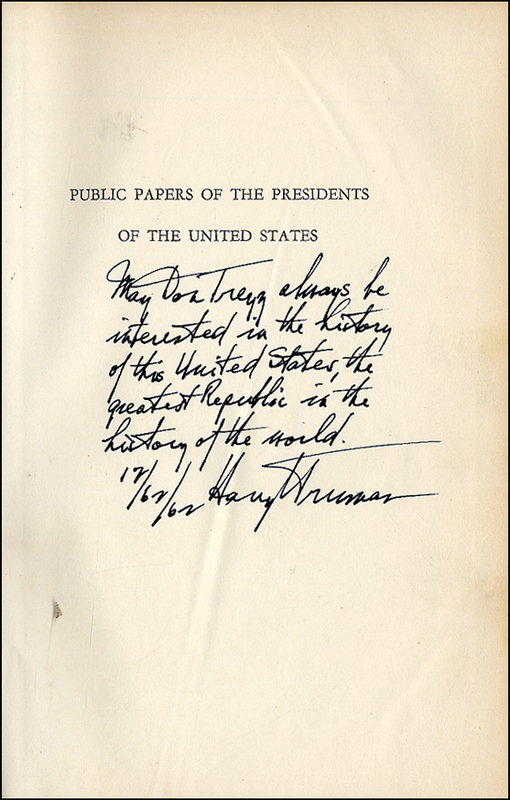 PUBLIC PAPERS OF THE PRESIDENTS
OF THE UNITED STATES
May Don Tregg always be
interested in the history
of this United States, the
greatest Republic in the
history of the world.
12/62/62 Harry Truman